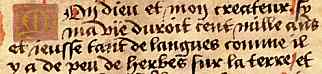 Mon dieu et mon createur se
ma vie duroit cent mille ans
et ieusse tant de langues comme il
y a de peu de herbes sur la terre et